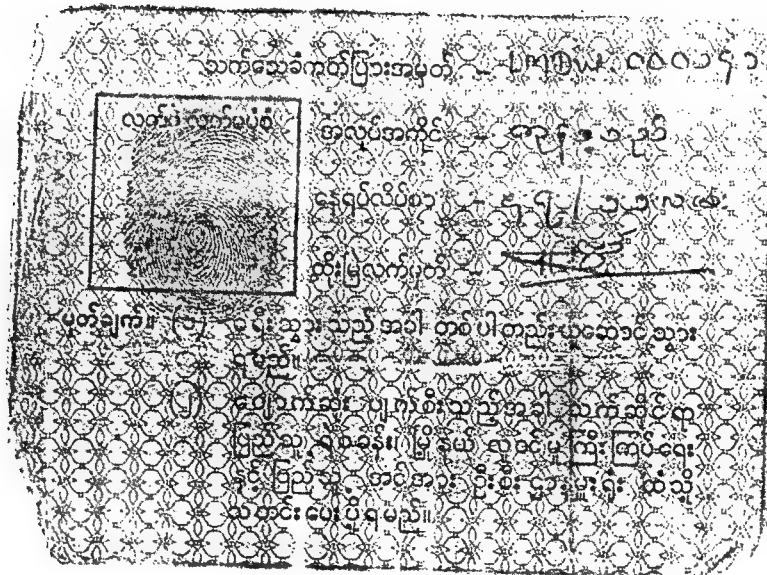 သက်သေခံကတ်ပြားအမှတ် -
လက်ဝဲလက်မပုံစံ
အလုပ်အကိုင် -
နေရပ်လိပ်စာ -
ထိုးမြဲလက်မှတ် -
မှတ်ချက်။ (၁) ခရီးသွားသည့်အခါ တစ်ပါတည်းယူဆောင်သွား
ရမည်။
(၂) ပျောက်ဆုံး ပျက်စီးသည့်အခါ သက်ဆိုင်ရာ
ပြည်သူ့ရဲစခန်း၊ မြို့နယ် လူဝင်မှုကြီးကြပ်ရေး
နှင့် ပြည်သူ့ အင်အား ဦးစီးဌာနမှူးရုံး ထံသို့
သတင်းပေးပို့ရမည်။